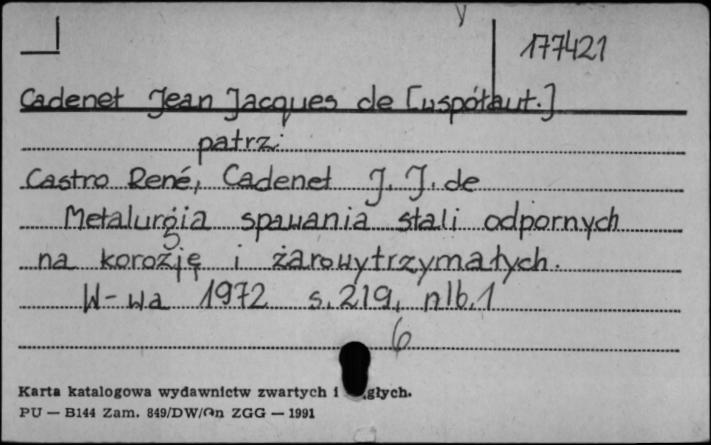 177421
Cadenet Jean Jacques de [współaut.]
patrz:
Castro René, Cadenet J. J. de
Metalurgia spawania stali odpornych
na korozję i żarowytrzymałych.
W-wa 1972 s. 219, nlb. 1
6
Karta katalogowa wydawnictw zwartych i
PU — B144 Zam. 849/DW/On ZGG — 1991